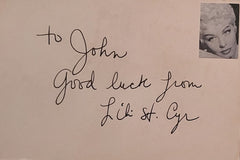 to John
Good luck from
Lili St. Cyr